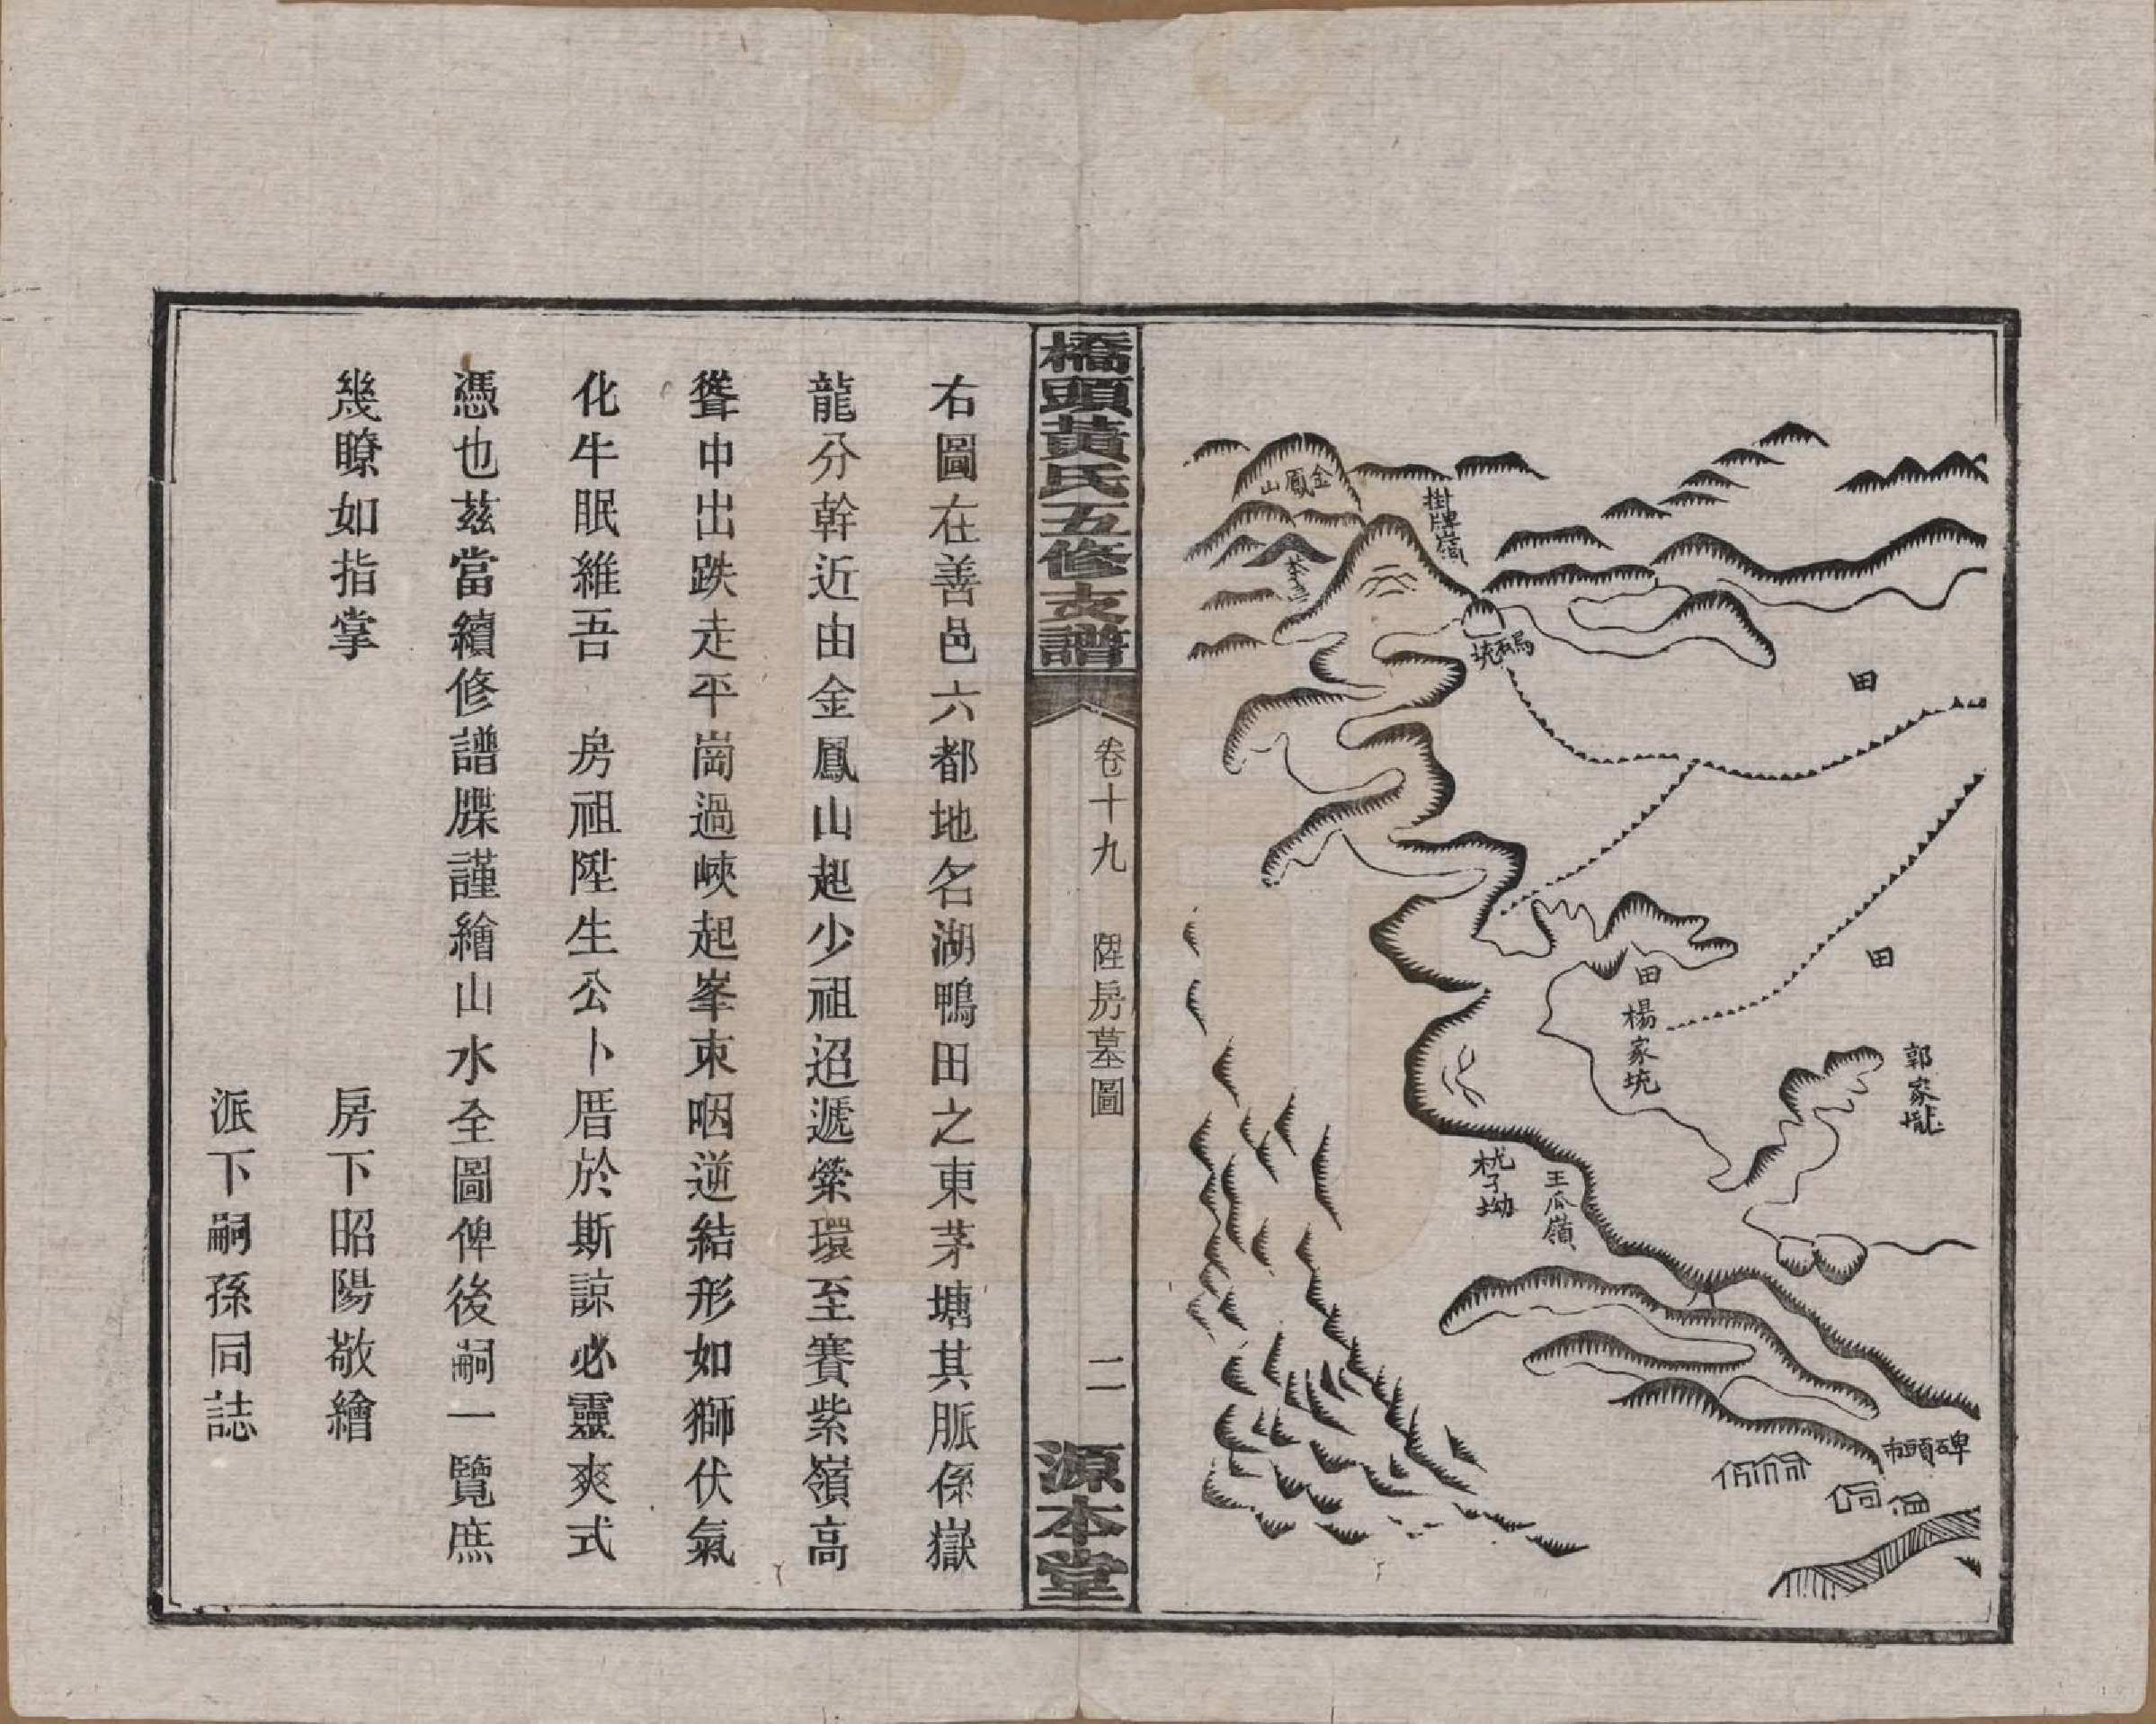 金鳳山
掛牌嶺
田
田
田
楊家坑
郭家壠
王瓜嶺
碑頭市
橋頭黃氏五修支譜
卷十九
陞房墓圖
二
源本堂
右圖在善邑六都地名湖鴨田之東茅塘其脈係嶽
龍分幹近由金鳳山起少祖迢遞縈環至賽紫嶺高
聳中出跌走平崗過峽起峯束咽逆結形如獅伏氣
化牛眠維吾 房祖陞生公卜厝於斯諒必靈爽式
憑也茲當續修譜牒謹繪山水全圖俾後嗣一覽庶
幾瞭如指掌
房下昭陽敬繪
派下嗣孫同誌